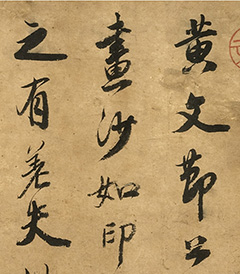 黄文節公
畫沙如印
之有